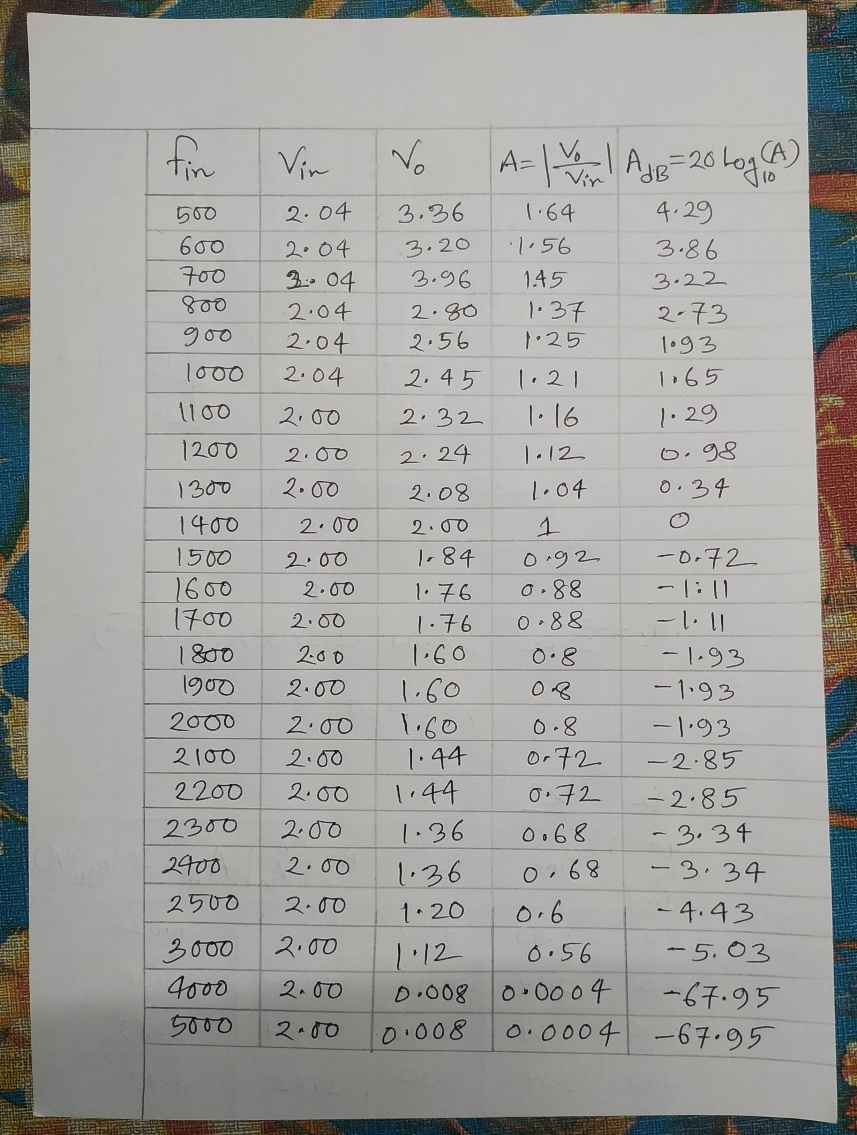 fin Vin Vo A=|Vo/Vin| AdB=20 Log10(A)
500 2.04 3.36 1.64 4.29
600 2.04 3.20 1.56 3.86
700 2.04 3.96 1.45 3.22
800 2.04 2.80 1.37 2.73
900 2.04 2.56 1.25 1.93
1000 2.04 2.45 1.21 1.65
1100 2.00 2.32 1.16 1.29
1200 2.00 2.24 1.12 0.98
1300 2.00 2.08 1.04 0.34
1400 2.00 2.00 1 0
1500 2.00 1.84 0.92 -0.72
1600 2.00 1.76 0.88 -1.11
1700 2.00 1.76 0.88 -1.11
1800 2.00 1.60 0.8 -1.93
1900 2.00 1.60 0.8 -1.93
2000 2.00 1.60 0.8 -1.93
2100 2.00 1.44 0.72 -2.85
2200 2.00 1.44 0.72 -2.85
2300 2.00 1.36 0.68 -3.34
2400 2.00 1.36 0.68 -3.34
2500 2.00 1.20 0.6 -4.43
3000 2.00 1.12 0.56 -5.03
4000 2.00 0.008 0.0004 -67.95
5000 2.00 0.008 0.0004 -67.95